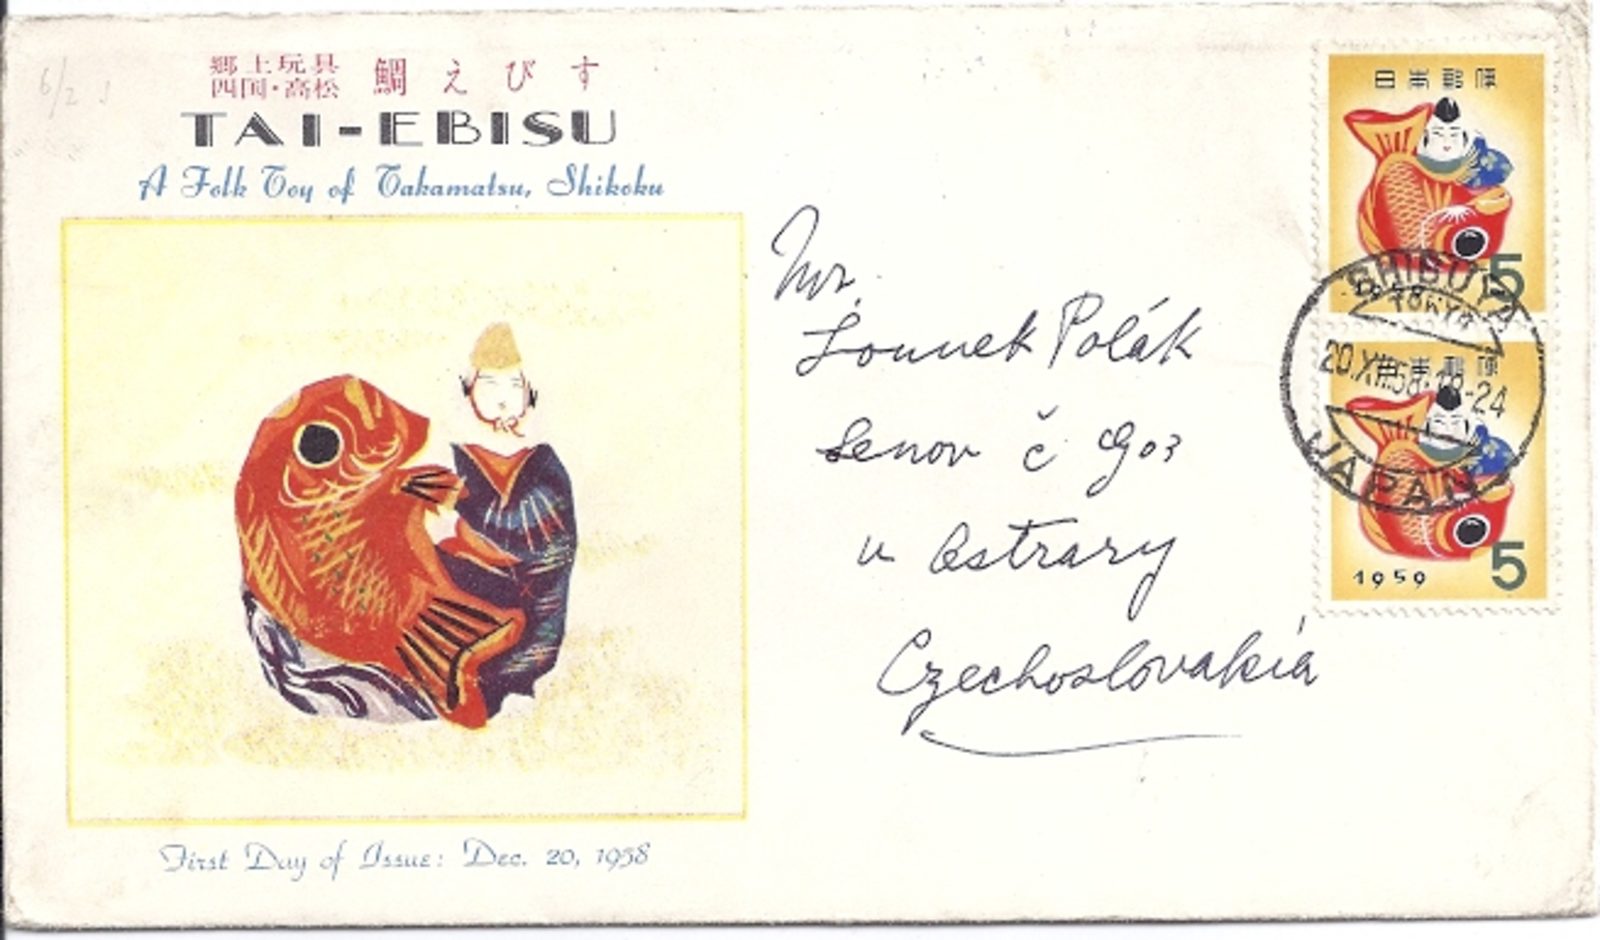 6/2
郷土玩具
四国・高松
鯛えびす
TAI-EBISU
A Folk Toy of Takamatsu, Shikoku
First Day of Issue: Dec. 20, 1958
Mr.
Polák
Senov č 903
u Ostravy
Czechoslovakia
日本郵便
5
SHIBUYA
TOKYO
20.XII.58.18-24
JAPAN
日本郵便
1959
5